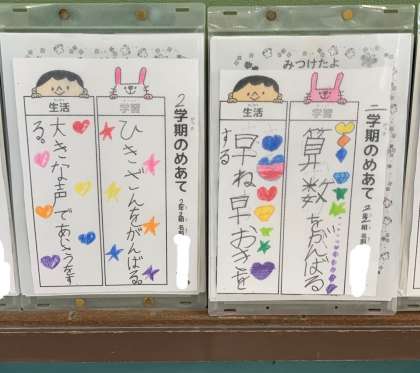 2学期のめあて
2年2組 名前
学習
ひきざんをがんばる。
生活
大きな声であいさつをす
る。
みつけたよ
二学期のめあて
2年2組 名前
学習
算数をがんばる
生活
早ね早おきを
する